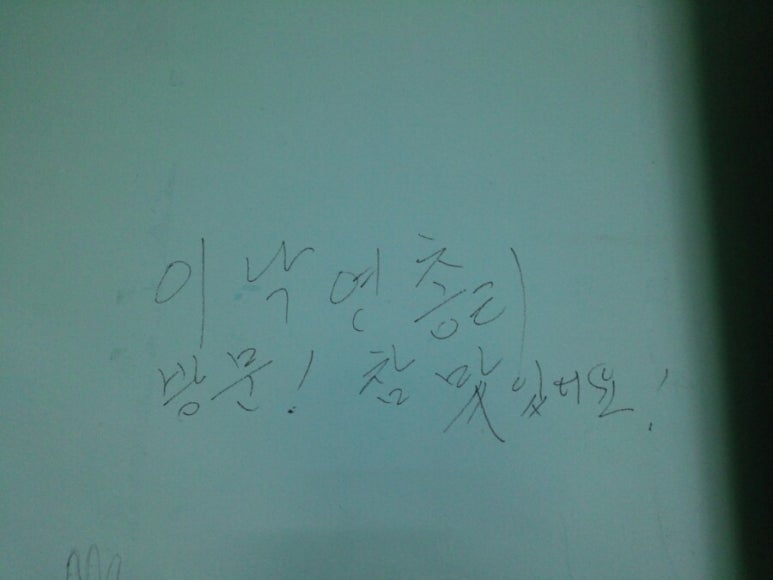 이낙연총리
방문! 참 맛있어요!